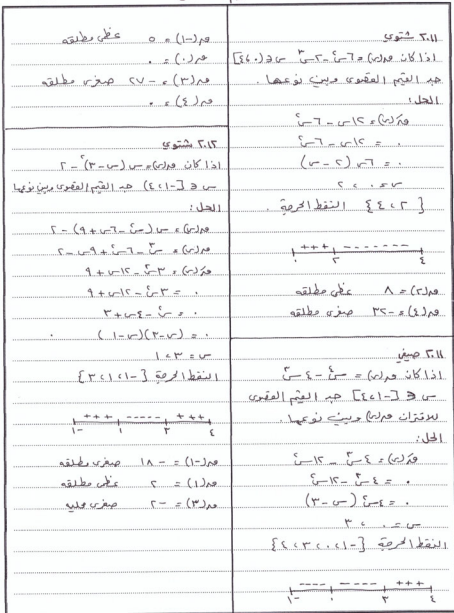 ٢٠١١ شتوي
اذا كان ق(س) = ٦س٢ - ٢س٣ س ∈ [٤،٠]
جد القيم القصوى وبين نوعها.
الحل:
قَ(س) = ١٢س - ٦س٢
٠ = ١٢س - ٦س٢
٠ = ٦س (٢ - س)
س = ٠ ، ٢
{٢ ، ٤} النقط الحرجة.
+++ -------
٠ ٢ ٤
ق(٢) = ٨ عظمى مطلقه
ق(٤) = -٣٢ صغرى مطلقه
٢٠١١ صيفي
اذا كان ق(س) = س٤ - ٤س٣
س ∈ [-١،٤] جد القيم القصوى
للاقتران ق(س) وبين نوعها.
الحل:
قَ(س) = ٤س٣ - ١٢س٢
٠ = ٤س٣ - ١٢س٢
٠ = ٤س٢ (س - ٣)
س = ٠ ، ٣
النقط الحرجة {-١،٠،٣،٤}
---- ---- +++
-١ ٠ ٣ ٤
ق(-١) = ٥ عظمى مطلقه
ق(٠) = ٠
ق(٣) = -٢٧ صغرى مطلقه
ق(٤) = ٠
٢٠١٢ شتوي
اذا كان ق(س) = س(س-٣)٢ - ٢
س ∈ [-١،٤) جد القيم القصوى وبين نوعها
الحل:
ق(س) = س(س٢ - ٦س + ٩) - ٢
ق(س) = س٣ - ٦س٢ + ٩س - ٢
قَ(س) = ٣س٢ - ١٢س + ٩
٠ = ٣س٢ - ١٢س + ٩
٠ = س٢ - ٤س + ٣
٠ = (س-٣)(س-١)
س = ٣ ، ١
النقط الحرجة {-١،١،٣}
+++ ----- +++
-١ ١ ٣ ٤
ق(-١) = -١٨ صغرى مطلقه
ق(١) = ٢ عظمى مطلقه
ق(٣) = -٢ صغرى محليه